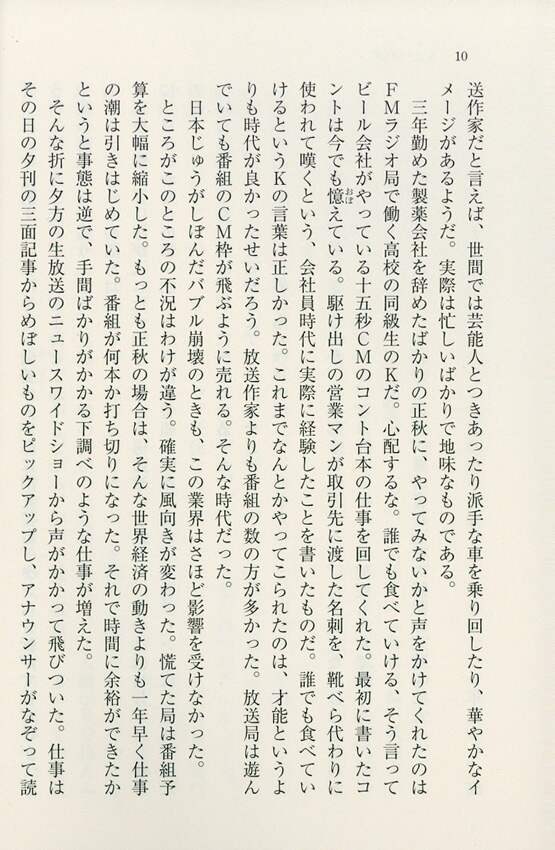 10
送作家だと言えば、世間では芸能人とつきあったり派手な車を乗り回したり、華やかなイ
メージがあるようだ。実際は忙しいばかりで地味なものである。
三年勤めた製薬会社を辞めたばかりの正秋に、やってみないかと声をかけてくれたのは
ＦＭラジオ局で働く高校の同級生のＫだ。心配するな。誰でも食べていける、そう言って
ビール会社がやっている十五秒ＣＭのコント台本の仕事を回してくれた。最初に書いたコ
ントは今でも憶えている。駆け出しの営業マンが取引先に渡した名刺を、靴べら代わりに
おぼ
使われて嘆くという、会社員時代に実際に経験したことを書いたものだ。誰でも食べてい
けるというＫの言葉は正しかった。これまでなんとかやってこられたのは、才能というよ
りも時代が良かったせいだろう。放送作家よりも番組の数の方が多かった。放送局は遊ん
でいても番組のＣＭ枠が飛ぶように売れる。そんな時代だった。
日本じゅうがしぼんだバブル崩壊のときも、この業界はさほど影響を受けなかった。
ところがこのところの不況はわけが違う。確実に風向きが変わった。慌てた局は番組予
算を大幅に縮小した。もっとも正秋の場合は、そんな世界経済の動きよりも一年早く仕事
の潮は引きはじめていた。番組が何本か打ち切りになった。それで時間に余裕ができたか
というと事態は逆で、手間ばかりがかかる下調べのような仕事が増えた。
そんな折に夕方の生放送のニュースワイドショーから声がかかって飛びついた。仕事は
その日の夕刊の三面記事からめぼしいものをピックアップし、アナウンサーがなぞって読